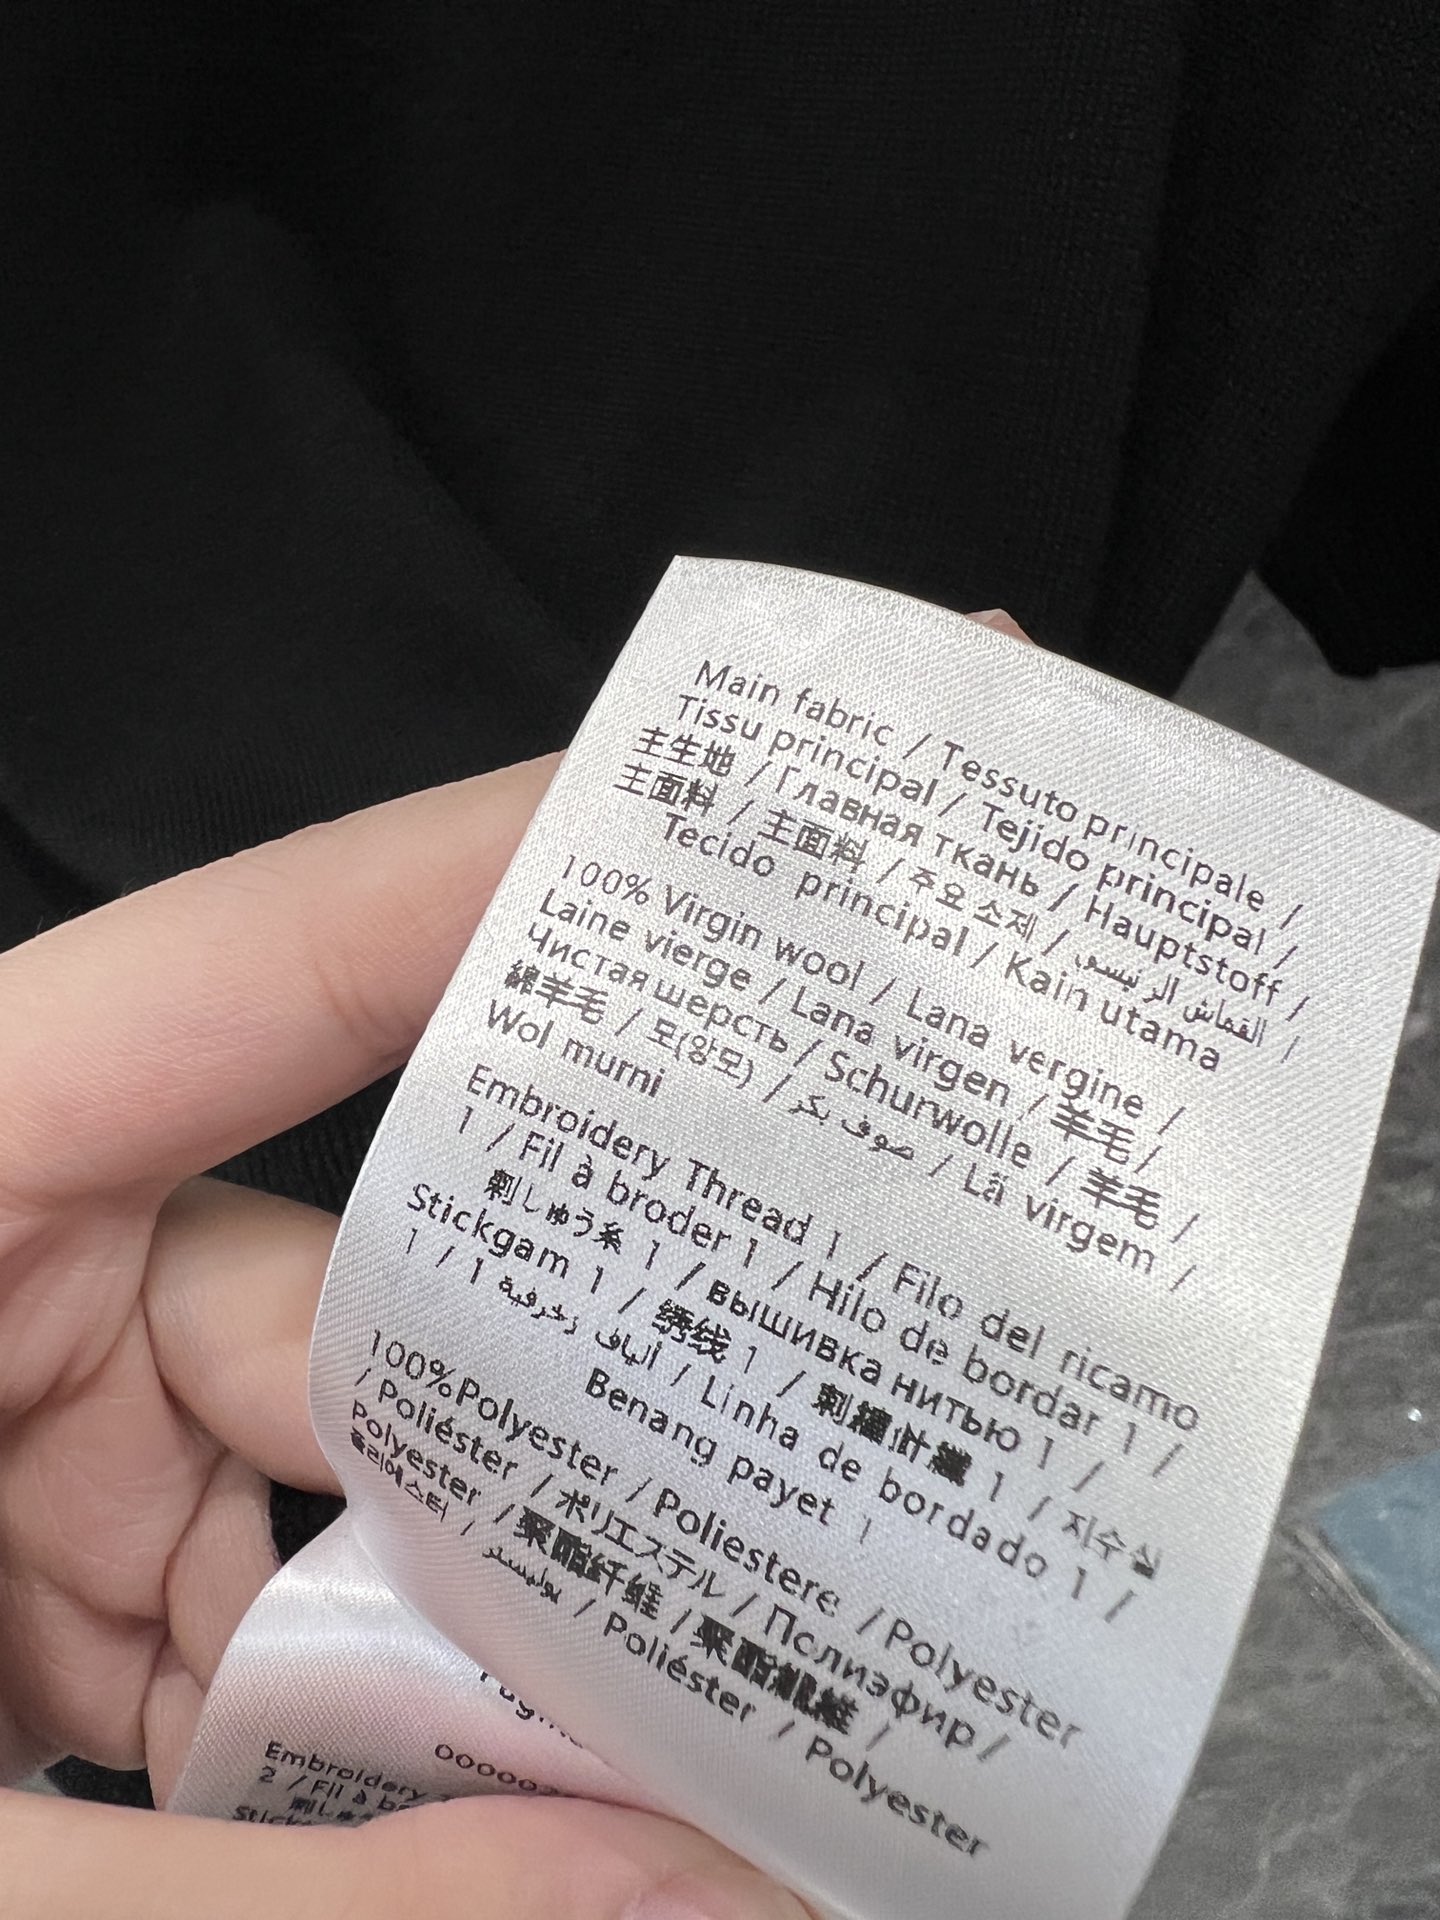 Main fabric / Tessuto principale /
Tissu principal / Tejido principal /
主生地 / Главная ткань / Hauptstoff /
主面料 / 主面料 / 주요 소재 / القماش الرئيسي /
Tecido principal / Kain utama
100% Virgin wool / Lana vergine /
Laine vierge / Lana virgen / 羊毛 /
Чистая шерсть / Schurwolle / 羊毛 /
綿羊毛 / 모(양모) / صوف بكر / Lã virgem /
Wol murni
Embroidery Thread 1 / Filo del ricamo
1 / Fil à broder 1 / Hilo de bordar 1 /
刺しゅう糸 1 / вышивка нитью 1 /
Stickgarn 1 / 绣线 1 / 刺繡 1 / 자수실
1 / ألياف زخرفية 1 / Linha de bordado 1 /
Benang payet 1
100%Polyester / Poliestere / Polyester
/ Poliéster / ポリエステル / Полиэфир /
Polyester / 聚酯纤维 / 聚酯 /
폴리에스터 / بوليستر / Poliéster / Polyester
Embroidery
2 / Fil à